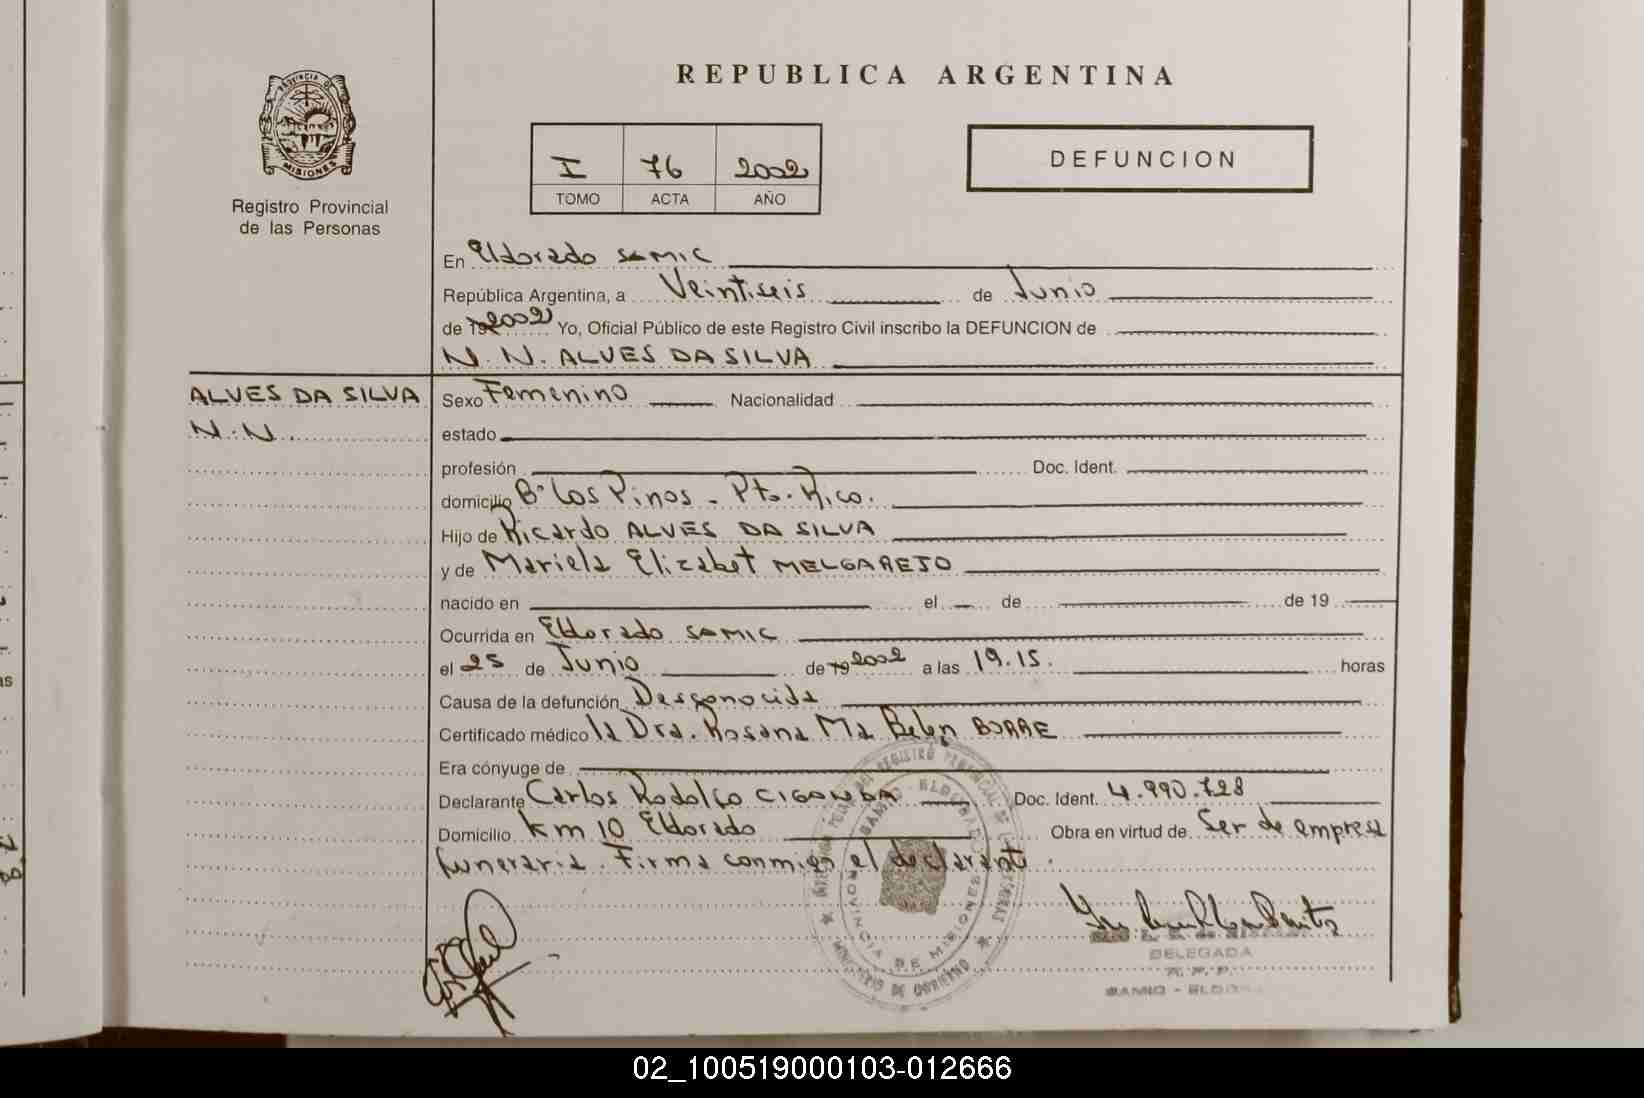 REPUBLICA ARGENTINA
PROVINCIA DE MISIONES
Registro Provincial
de las Personas
I 76 2002
TOMO ACTA AÑO
DEFUNCION
En Eldorado SAMIC
República Argentina, a Veintiseis de Junio
de 19 2002 Yo, Oficial Público de este Registro Civil inscribo la DEFUNCION de
N.N. ALVES DA SILVA
ALVES DA SILVA
N.N.
Sexo Femenino Nacionalidad
estado
profesión Doc. Ident.
domicilio Bº Los Pinos - Pto. Rico.
Hijo de Ricardo ALVES DA SILVA
y de Mariela Elizabet MELGAREJO
nacido en el de de 19
Ocurrida en Eldorado SAMIC
el 25 de Junio de 19 2002 a las 19.15. horas
Causa de la defunción Desconocida
Certificado médico la Dra. Rosana Ma Belen BORRE
Era cónyuge de
Declarante Carlos Rodolfo CIGANDA Doc. Ident. 4.990.728
Domicilio km 10 Eldorado Obra en virtud de Ser de empresa
funeraria. Firma conmigo el declarante.
PROVINCIA DE MISIONES
MINISTERIO DE GOBIERNO
DELEGADA
SAMIC - ELDO
02_100519000103-012666